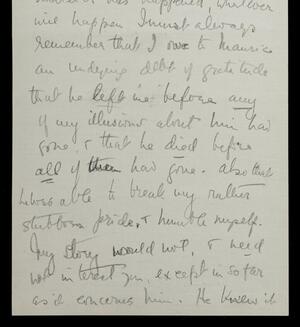 has happened, whatever
will happen I must always
remember that I owe to Maurice
an undying debt of gratitude
that he left me before any
of my illusions about him had
gone, & that he died before
all of them had gone. also that
he was able to break my rather
stubborn pride, & humble myself.
My story would not, & need
not interest you, except in so far
as it concerns him. He knew it